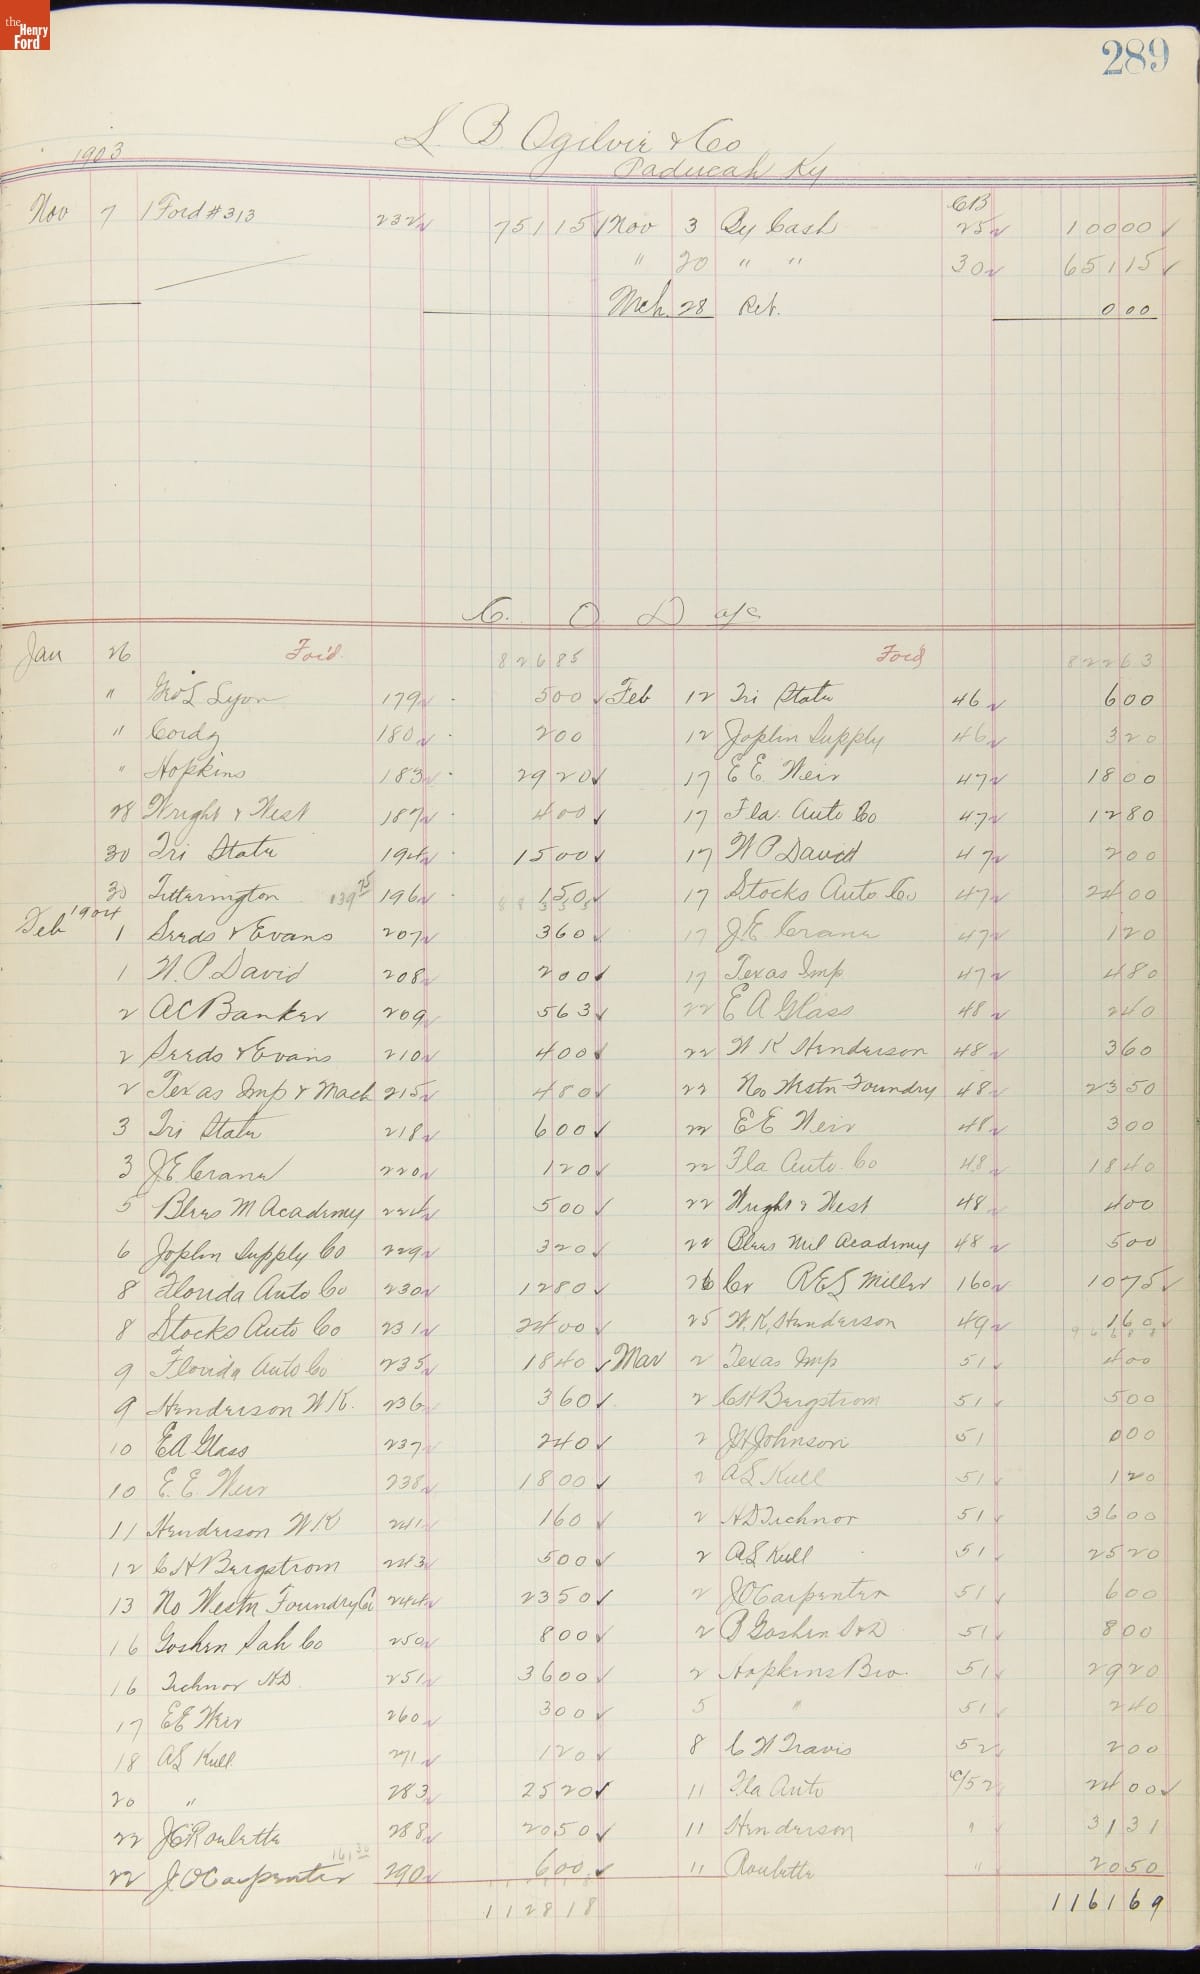 the Henry Ford
289
L. B. Ogilvie & Co
1903 Paducah Ky
Nov 7 1 Ford #313 232 751 15 Nov 3 By Cash CB 25 100 00
" 20 " " 30 651 15
Mch. 28 Ret. 0 00
C. O. D a/c
Jan 26 For'd. 826 85 For'd 822 63
" Geo S Lyon 179 5 00 Feb 12 Tri State 46 6 00
" Cordz 180 2 00 12 Joplin Supply 46 3 20
" Hopkins 183 29 20 17 E E Weir 47 18 00
28 Wright & West 187 4 00 17 Fla. Auto Co 47 12 80
30 Tri State 194 15 00 17 W P David 47 2 00
30 Titterington 139 75 196 1 50 17 Stocks Auto Co 47 24 00
Feb 1904 1 Seeds & Evans 207 3 60 17 J E Crane 47 1 20
1 W. P. David 208 2 00 17 Texas Imp 47 4 80
2 A C Banker 209 5 63 22 E A Glass 48 2 40
2 Seeds & Evans 210 4 00 22 W K Henderson 48 3 60
2 Texas Imp & Mach 215 4 80 22 No Westn Foundry 48 23 50
3 Tri State 218 6 00 22 E E Weir 48 3 00
3 J. E. Crane 220 1 20 22 Fla Auto. Co 48 18 40
5 Blees M Academy 224 5 00 22 Wright & West 48 4 00
6 Joplin Supply Co 229 3 20 22 Blees Mil Academy 48 5 00
8 Florida Auto Co 230 12 80 26 Cr R E S Miller 160 10 75
8 Stocks Auto Co 231 24 00 25 W. K. Henderson 49 1 60
9 Florida Auto Co 235 18 40 Mar 2 Texas Imp 51 4 00
9 Henderson W K. 236 3 60 2 C H Bergstrom 51 5 00
10 E A Glass 237 2 40 2 J H Johnson 51 0 00
10 E. E. Weir 238 18 00 2 A S Kull 51 1 20
11 Henderson W K 241 1 60 2 H D Tichnor 51 36 00
12 C H Bergstrom 243 5 00 2 A. S. Kull 51 25 20
13 No Westn Foundry Co 244 23 50 2 J O Carpenter 51 6 00
16 Goshen Sah Co 250 8 00 2 B Goshen 51 8 00
16 Tichnor H D 251 36 00 2 Hopkins Bro. 51 29 20
17 E E Weir 260 3 00 5 " 51 2 40
18 A S Kull. 271 1 20 8 C W Travis 52 2 00
20 " 283 25 20 11 Fla Auto c/52 24 00
22 J C Roulette 288 20 50 11 Henderson " 31 31
22 J O Carpenter 290 6 00 11 Roulette " 20 50
1128 18 1161 69